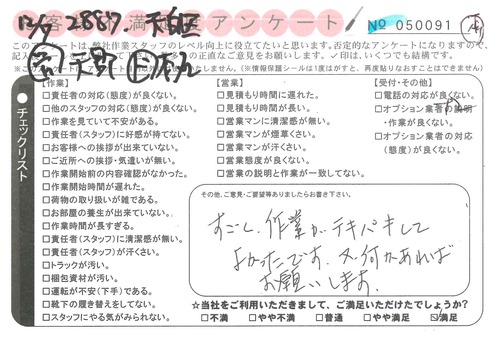 お客様満足度アンケート
12/7 2887. 天白区
№ 050091
このアンケートは、弊社作業スタッフのレベル向上に役立てたいと思います。否定的なアンケートになりますので、
多くの正直なご意見をお願いします。✓印は、いくつでも結構です。
なお、このアンケートは
りません。(※情報保護シールは1度はがすと、再度貼りなおすことはできません)
チェックリスト
【作業】
□責任者の対応(態度)が良くない。
□他のスタッフの対応(態度)が良くない。
□作業を見ていて不安がある。
□責任者(スタッフ)に好感が持てない。
□お客様への挨拶が出来ていない。
□ご近所への挨拶・気遣いが無い。
□作業開始前の内容確認がなかった。
□作業開始時間が遅れた。
□荷物の取り扱いが雑である。
□お部屋の養生が出来ていない。
□作業時間が長すぎる。
□責任者(スタッフ)に清潔感が無い。
□責任者(スタッフ)が汗くさい。
□トラックが汚い。
□梱包資材が汚い。
□運転が不安(下手)である。
□靴下の履き替えをしてない。
□スタッフにやる気がみられない。
【営業】
□見積もり時間に遅れた。
□見積もり時間が長い。
□営業マンに清潔感が無い。
□営業マンが煙草くさい。
□営業マンが汗くさい。
□営業態度が良くない。
□営業の説明と作業が一致してない。
【受付・その他】
□電話の対応が良くない。
□オプション業者の説明
・作業が良くない。
□オプション業者の対応
(態度)が良くない。
その他、ご意見・ご要望等ありましたらお書き下さい。
すごく、作業がテキパキして
よかったです。又何かあれば
お願いします。
☆当社をご利用いただきまして、ご満足いただけたでしょうか?
□不満 □やや不満 □普通 □やや満足 ☑満足